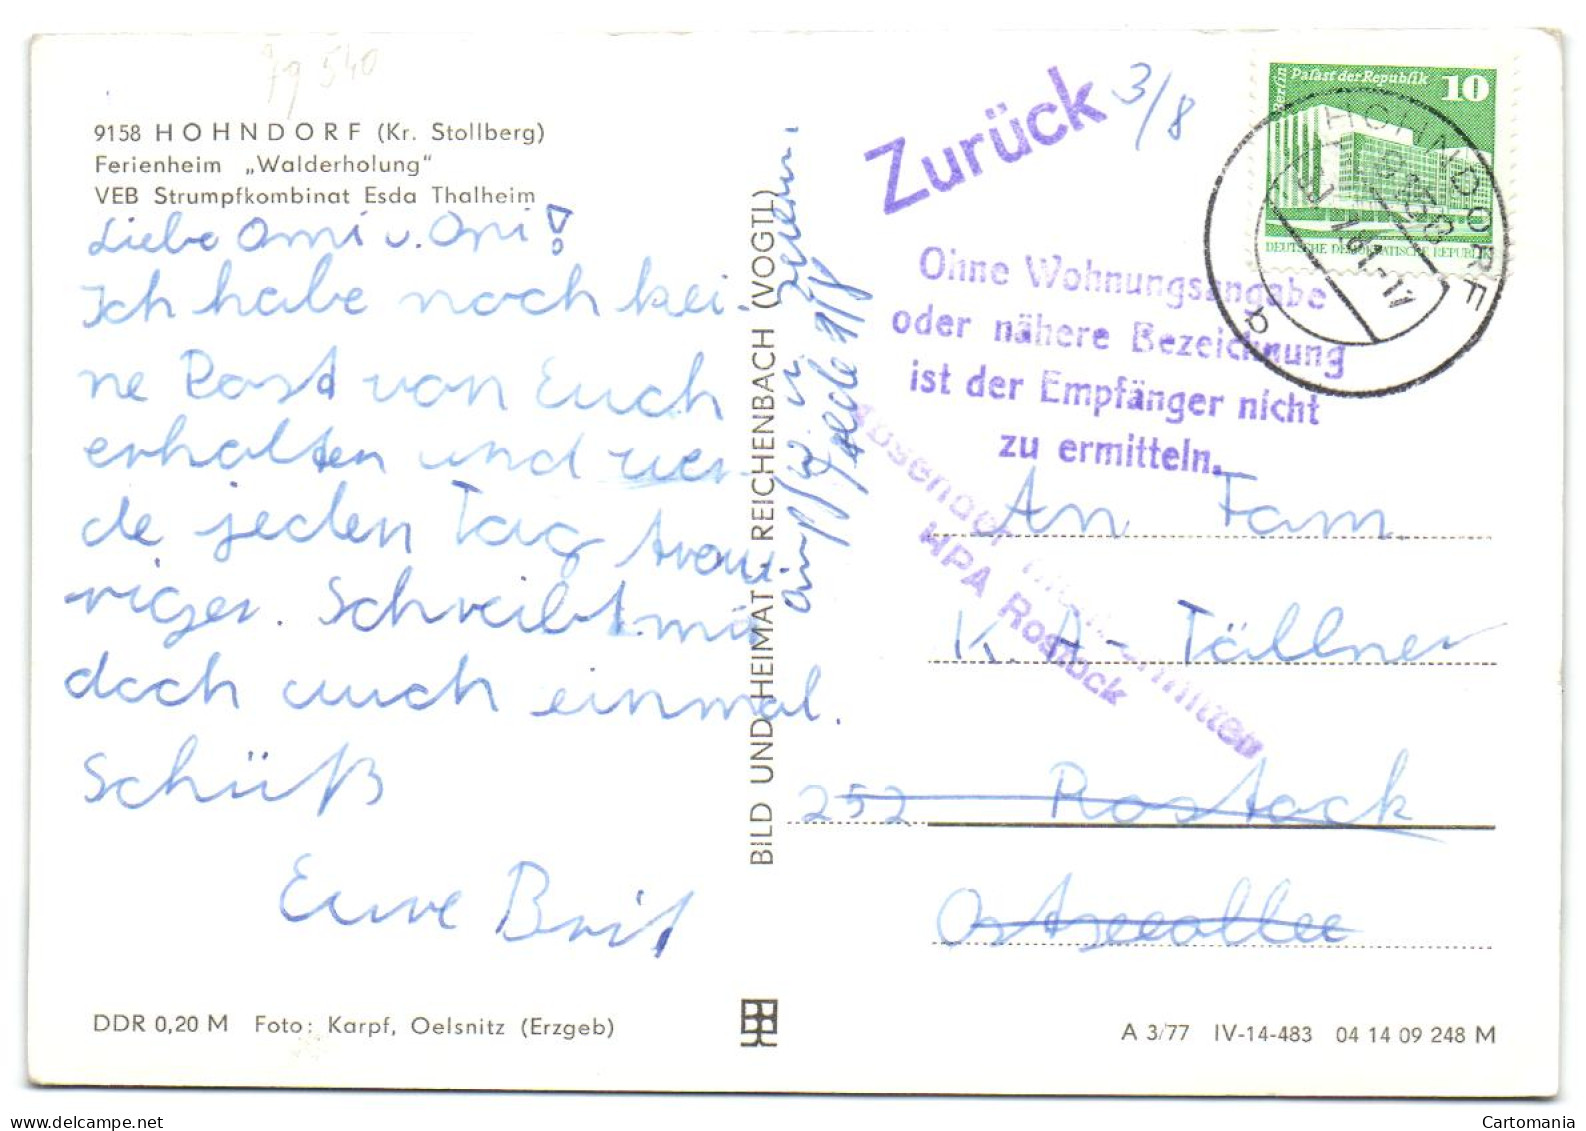 79 540
9158 HOHNDORF (Kr. Stollberg)
Ferienheim „Walderholung“
VEB Strumpfkombinat Esda Thalheim
Liebe Omi u. Opi!
Ich habe noch kei-
ne Post von Euch
erhalten und wer-
de jeden Tag trau-
riger. Schreibt mir
doch auch einmal.
Schüß
Eure Brit
DDR 0,20 M Foto: Karpf, Oelsnitz (Erzgeb)
BILD UND HEIMAT REICHENBACH (VOGTL)
Zurück
3/8
Ohne Wohnungsangabe
oder nähere Bezeichnung
ist der Empfänger nicht
zu ermitteln.
Absender nicht zu ermitteln
HPA Rostock
Berlin Palast der Republik 10
DEUTSCHE DEMOKRATISCHE REPUBLIK
HOHNDORF
An Fam.
K. A- Tällner
252 Rostock
Ostseeallee
A 3/77 IV-14-483 04 14 09 248 M
Cartomania